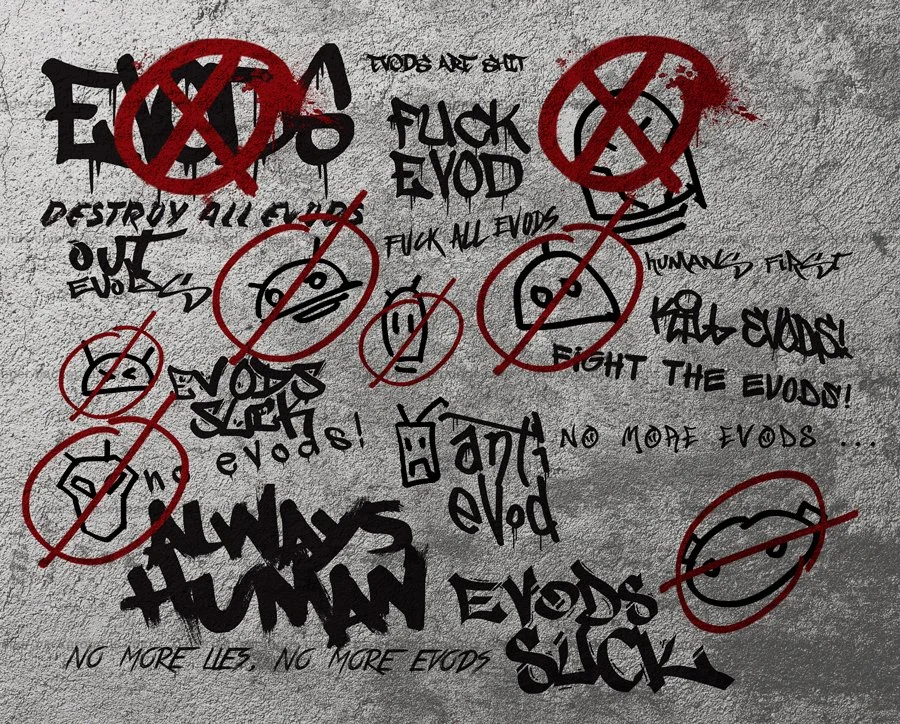 EVODS
EVODS ARE SHIT
FUCK
EVOD
DESTROY ALL EVODS
OUT
EVODS
FUCK ALL EVODS
HUMANS FIRST
KILL EVODS!
FIGHT THE EVODS!
EVODS
SUCK
no evods!
anti
evod
NO MORE EVODS ...
ALWAYS
HUMAN
EVODS
SUCK
NO MORE LIES, NO MORE EVODS